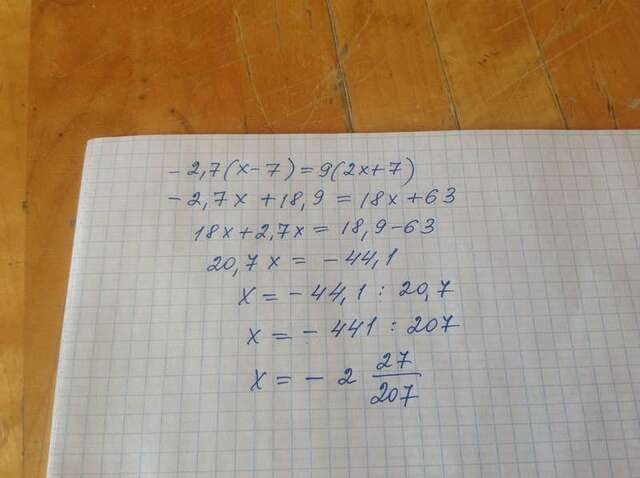 - 2,7(x-7)=9(2x+7)
- 2,7x+18,9=18x+63
18x+2,7x=18,9-63
20,7x=-44,1
x=-44,1:20,7
x=-441:207
x=-2 27/207